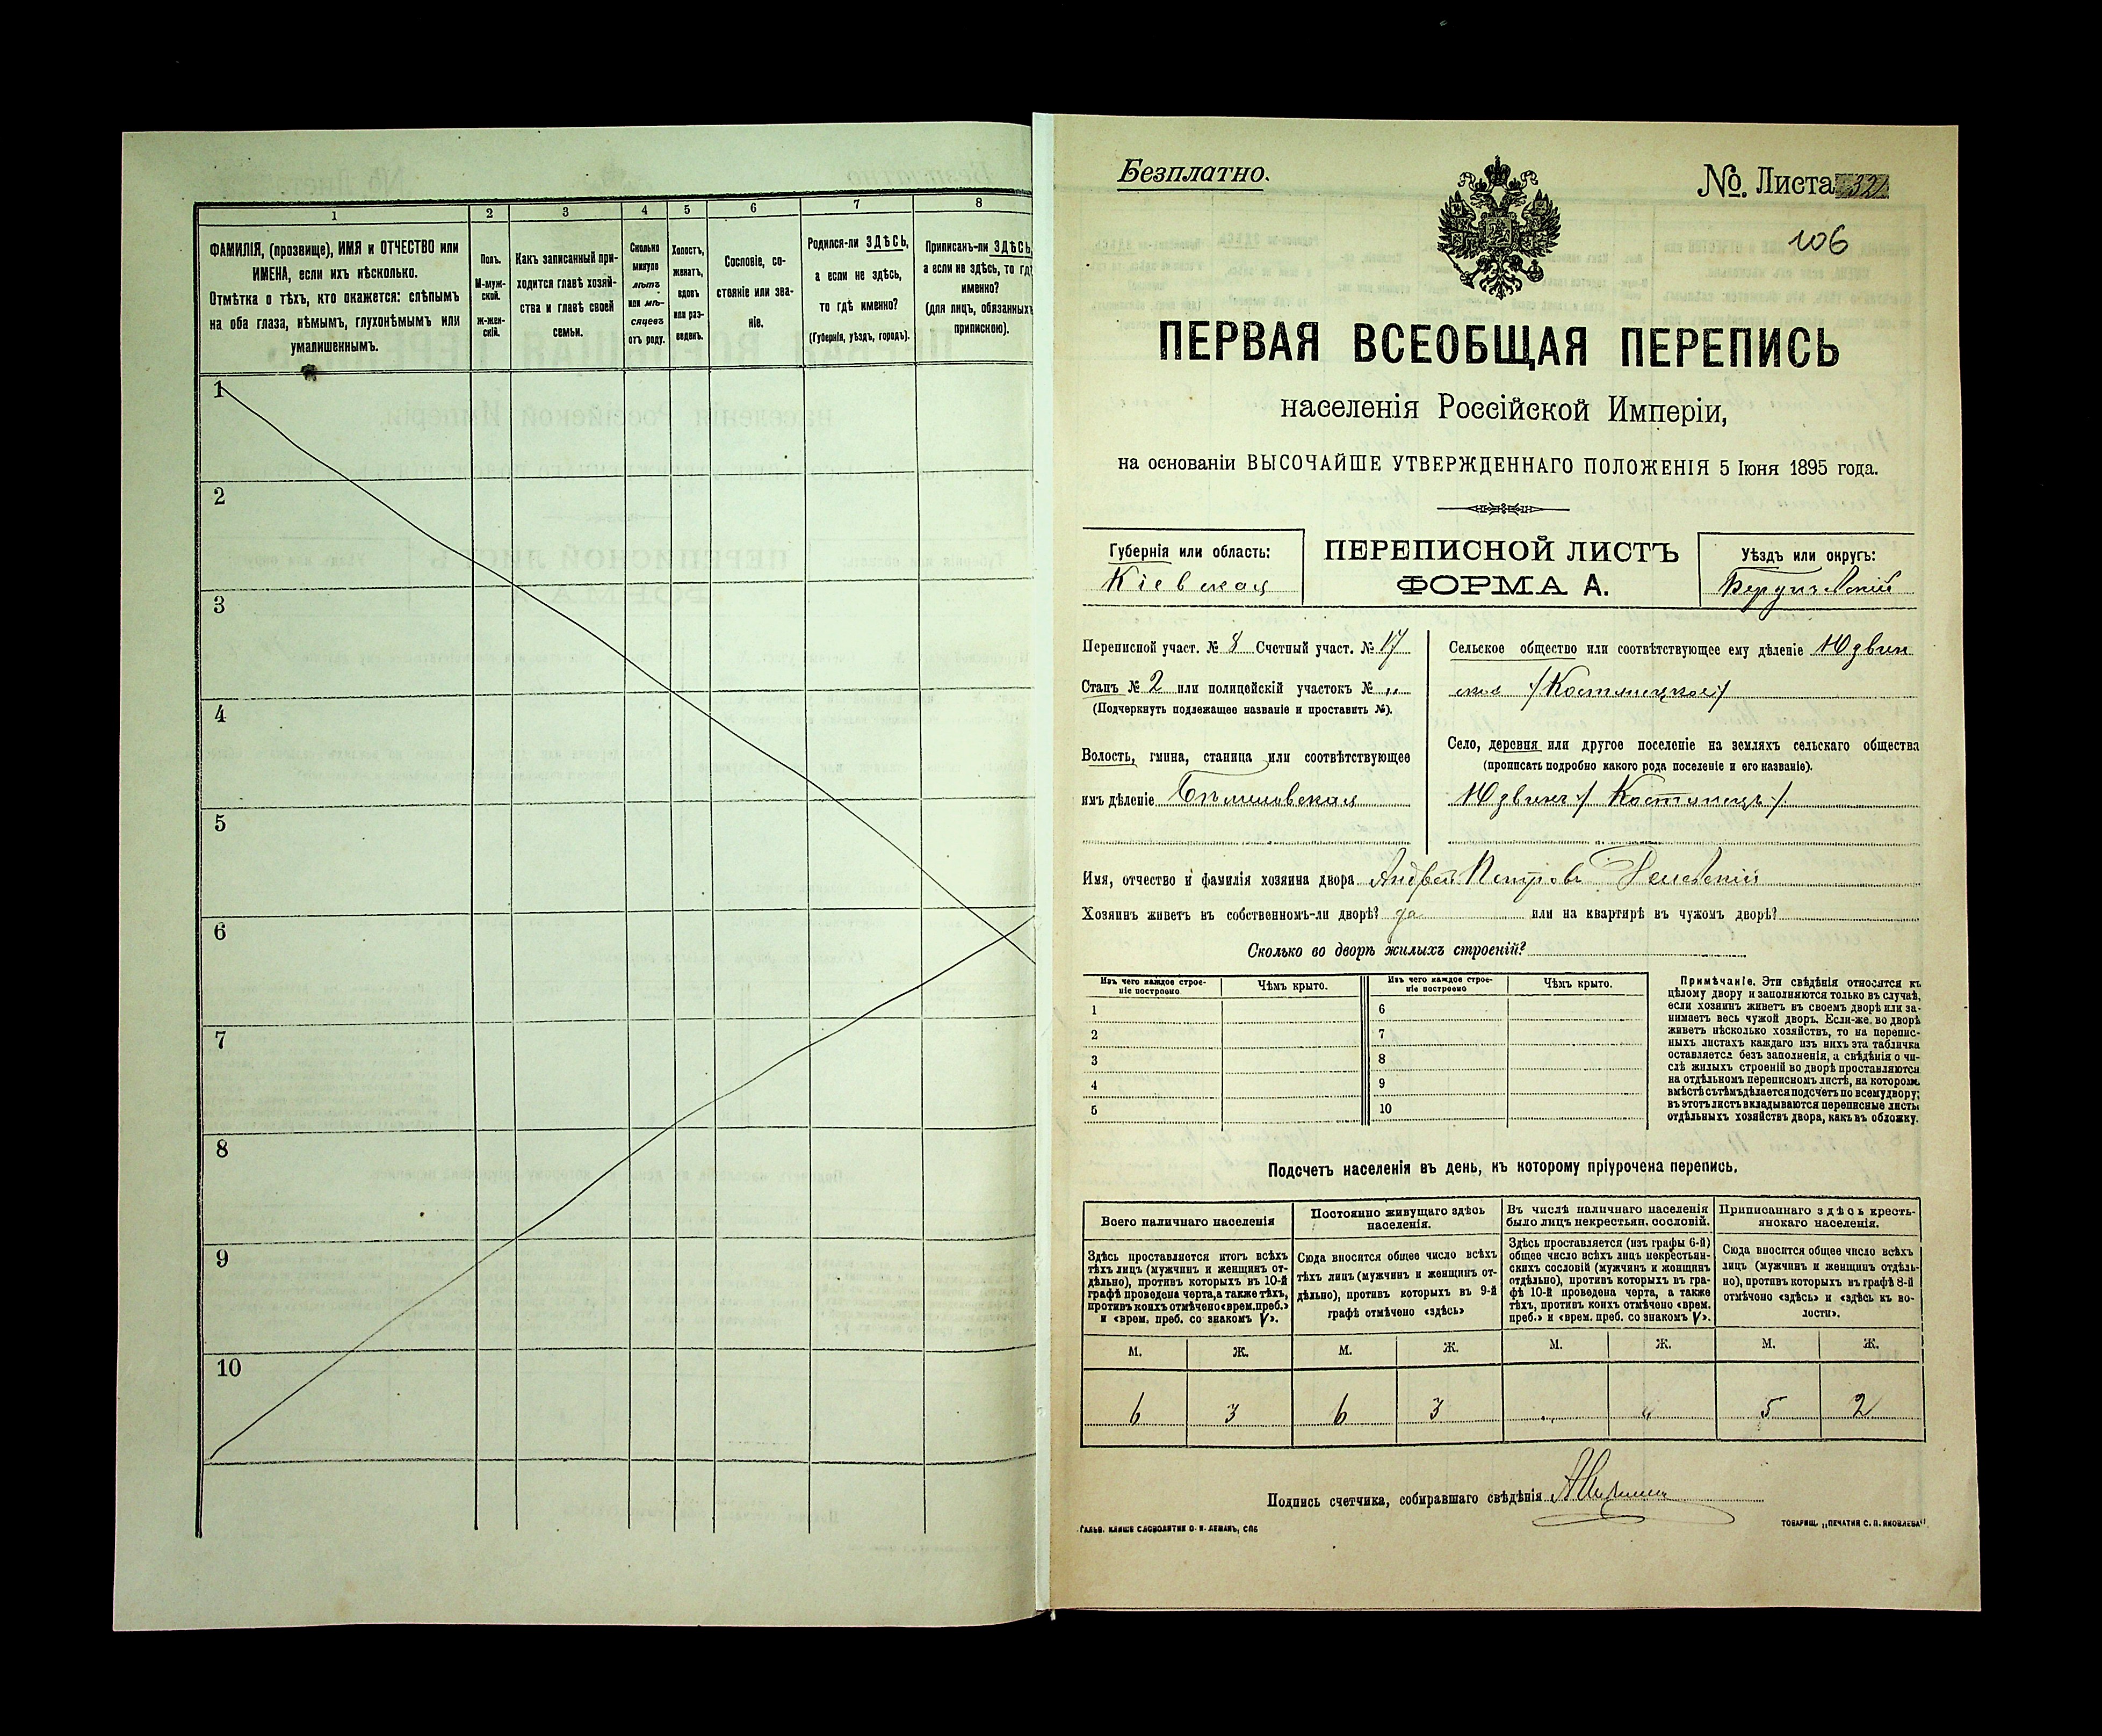 1 2 3 4 5 6 7 8
ФАМИЛІЯ, (прозвище), ИМЯ и ОТЧЕСТВО или
ИМЕНА, если ихъ нѣсколько.
Отмѣтка о тѣхъ, кто окажется: слѣпымъ
на оба глаза, нѣмымъ, глухонѣмымъ или
умалишеннымъ.
Полъ.
М-муж-
ской.
ж-жен-
скій.
Какъ записанный при-
ходится главѣ хозяй-
ства и главѣ своей
семьи.
Сколько
минуло
лѣтъ
или мѣ-
сяцевъ
отъ роду.
Холостъ,
женатъ,
вдовъ
или раз-
веденъ.
Сословіе, со-
стояніе или зва-
ніе.
Родился-ли ЗДѢСЬ,
а если не здѣсь,
то гдѣ именно?
(Губернія, уѣздъ, городъ).
Приписанъ-ли ЗДѢСЬ,
а если не здѣсь, то гдѣ
именно?
(для лицъ, обязанныхъ
припискою).
1
2
3
4
5
6
7
8
9
10
Безплатно.
№ Листа 32
106
ПЕРВАЯ ВСЕОБЩАЯ ПЕРЕПИСЬ
населенія Россійской Имперіи,
на основаніи ВЫСОЧАЙШЕ УТВЕРЖДЕННАГО ПОЛОЖЕНІЯ 5 Іюня 1895 года.
Губернія или область:
Кіевская
ПЕРЕПИСНОЙ ЛИСТЪ
ФОРМА А.
Уѣздъ или округъ:
Бердичевскій
Переписной участ. № 8 Счетный участ. № 17
Станъ № 2 или полицейскій участокъ № „
(Подчеркнуть подлежащее названіе и проставить №).
Волость, гмина, станица или соотвѣтствующее
имъ дѣленіе
Сельское общество или соотвѣтствующее ему дѣленіе Юдвин
ское /Костинецкое/
Село, деревня или другое поселеніе на земляхъ сельскаго общества
(прописать подробно какого рода поселеніе и его названіе).
Юдвинъ / Костинецъ /.
Имя, отчество и фамилія хозяина двора Андрей Петровъ
Хозяинъ живетъ въ собственномъ-ли дворѣ? да или на квартирѣ въ чужомъ дворѣ?
Сколько во дворѣ жилыхъ строеній?
Изъ чего каждое строе-
ніе построено
Чѣмъ крыто.
Изъ чего каждое строе-
ніе построено
Чѣмъ крыто.
1 6
2 7
3 8
4 9
5 10
Примѣчаніе. Эти свѣдѣнія относятся къ
цѣлому двору и заполняются только въ случаѣ,
если хозяинъ живетъ въ своемъ дворѣ или за-
нимаетъ весь чужой дворъ. Если-же во дворѣ
живетъ нѣсколько хозяйствъ, то на перепис-
ныхъ листахъ каждаго изъ нихъ эта табличка
оставляется безъ заполненія, а свѣдѣнія о чи-
слѣ жилыхъ строеній во дворѣ проставляются
на отдѣльномъ переписномъ листѣ, на которомъ
вмѣстѣ съ тѣмъ дѣлается подсчетъ по всему двору;
въ этотъ листъ вкладываются переписные листы
отдѣльныхъ хозяйствъ двора, какъ въ обложку.
Подсчетъ населенія въ день, къ которому пріурочена перепись.
Всего наличнаго населенія
Здѣсь проставляется итогъ всѣхъ
тѣхъ лицъ (мужчинъ и женщинъ от-
дѣльно), противъ которыхъ въ 10-й
графѣ проведена черта, а также тѣхъ,
противъ коихъ отмѣчено «врем. преб.»
и «врем. преб. со знакомъ V».
Постоянно живущаго здѣсь
населенія.
Сюда вносится общее число всѣхъ
тѣхъ лицъ (мужчинъ и женщинъ от-
дѣльно), противъ которыхъ въ 9-й
графѣ отмѣчено «здѣсь»
Въ числѣ наличнаго населенія
было лицъ некрестьян. сословій.
Здѣсь проставляется (изъ графы 6-й)
общее число всѣхъ лицъ некрестьян-
скихъ сословій (мужчинъ и женщинъ
отдѣльно), противъ которыхъ въ гра-
фѣ 10-й проведена черта, а также
тѣхъ, противъ коихъ отмѣчено «врем.
преб.» и «врем. преб. со знакомъ V».
Приписаннаго здѣсь кресть-
янскаго населенія.
Сюда вносится общее число всѣхъ
лицъ (мужчинъ и женщинъ отдѣль-
но), противъ которыхъ въ графѣ 8-й
отмѣчено «здѣсь» и «здѣсь къ во-
лости».
М. Ж. М. Ж. М. Ж. М. Ж.
6 3 6 3 „ „ 5 2
Подпись счетчика, собиравшаго свѣдѣнія
ГАЛЬВ. КЛИШЕ СЛОВОЛИТНИ О. И. ЛЕМАНЪ, СПБ
ТОВАРИЩ. „ПЕЧАТНЯ С. П. ЯКОВЛЕВА"